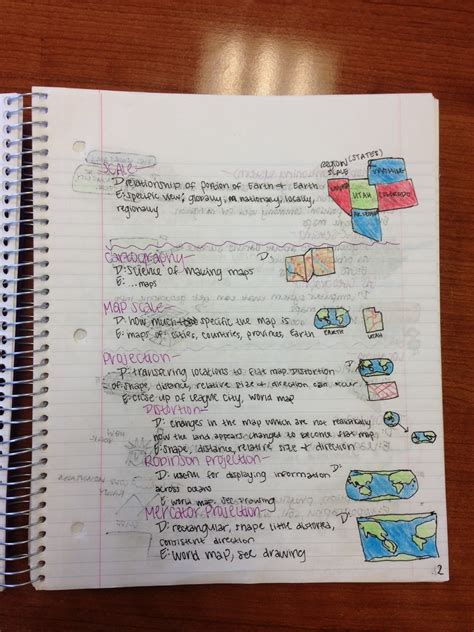 Scale-
D: relationship of portion of Earth & Earth
E: specific view, globally, nationally, locally,
regionally
REGION (STATES)
SCALE
WYOMING
UTAH
COLORADO
Cartography-
D: Science of making maps
D:
E: ...maps
Map Scale-
D: how much specific the map is
D:
E: maps of cities, countries, provinces, Earth
EARTH
UTAH
Projection-
D: transfering locations to flat map. Distortion
D:
of shape, distance, relative size & direction can occur
E: close up of league city, world map
Distortion-
D: changes in the map which are not realistically
how the land appears. changed to become flat map
E: shape, distance, relative size & direction
D:
Robinson Projection-
D: useful for displaying information
D:
across oceans
E: world map, see drawing
Mercator Projection-
D: rectangular, shape little distorted,
D:
consistent direction
E: world map, see drawing
2